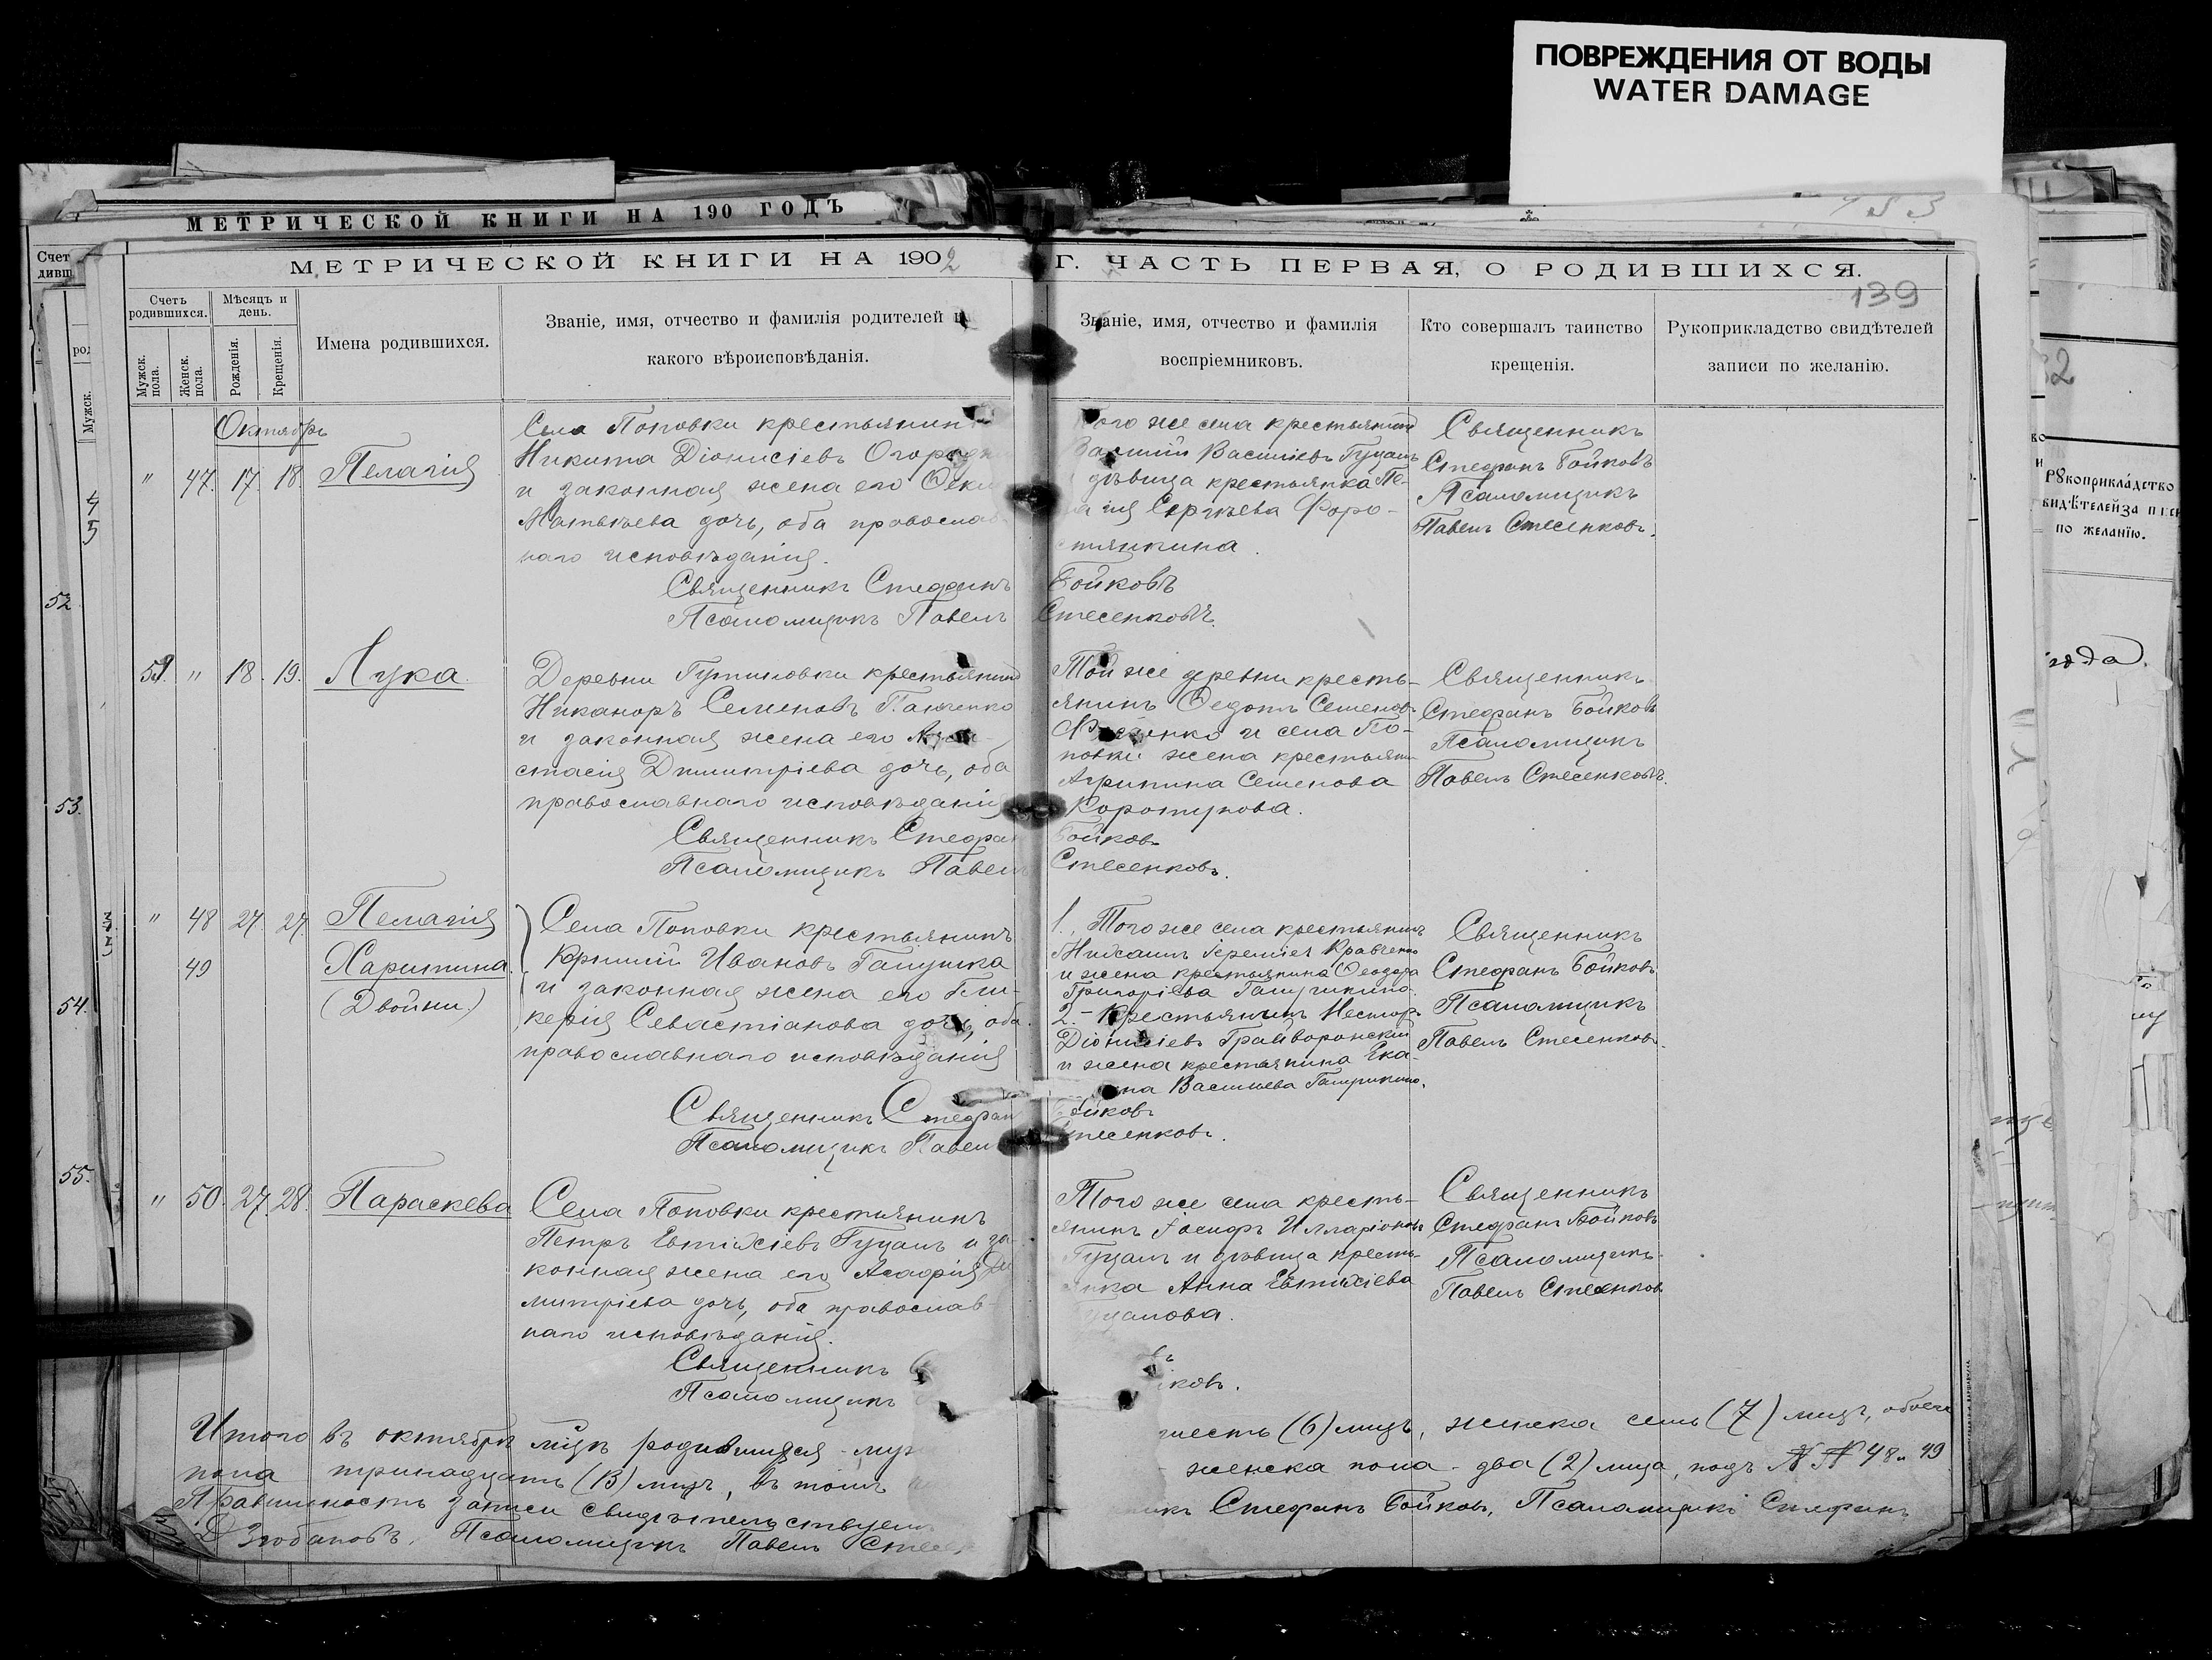 ПОВРЕЖДЕНИЯ ОТ ВОДЫ
WATER DAMAGE
МЕТРИЧЕСКОЙ КНИГИ НА 190 ГОДЪ
МЕТРИЧЕСКОЙ КНИГИ НА 1902 Г. ЧАСТЬ ПЕРВАЯ, О РОДИВШИХСЯ.
139
Счетъ родившихся.
Мужск. пола.
Женск. пола.
Мѣсяцъ и день.
Рожденія.
Крещенія.
Имена родившихся.
Званіе, имя, отчество и фамилія родителей и
какого вѣроисповѣданія.
Званіе, имя, отчество и фамилія
воспріемниковъ.
Кто совершалъ таинство
крещенія.
Рукоприкладство свидѣтелей
записи по желанію.
Октябрь
" 47. 17. 18. Пелагія
Села Поповки крестьянинъ
Никита Діонисіевъ
и законная жена его
дочь, оба православ-
наго исповѣданія.
Священникъ Стефанъ Бойковъ
Псаломщикъ Павелъ Стесенковъ.
того же села крестьянинъ
Василій Васильевъ Гуцалъ
дѣвица крестьянка Пе-
гія Сергѣева Форо-
стянкина.
Священникъ
Стефанъ Бойковъ
Псаломщикъ
Павелъ Стесенковъ.
" 18. 19. Лука.
Деревни крестьянинъ
Никаноръ Семеновъ
и законная жена его
стасія Димитріева дочь, оба
православнаго исповѣданія
Священникъ Стефанъ Бойковъ
Псаломщикъ Павелъ Стесенковъ.
Той же деревни кресть-
янинъ Федотъ Семеновъ
и села По-
повки жена крестьянина
Агрипина Семенова
Коротунова.
Священникъ
Стефанъ Бойковъ
Псаломщикъ
Павелъ Стесенковъ.
" 48 27. 27. Пелагія
49 Харитина.
(Двойни.)
Села Поповки крестьянинъ
Ивановъ Галушка
и законная жена его Гли-
керія Севастіанова дочь, оба
православнаго исповѣданія
Священникъ Стефанъ Бойковъ
Псаломщикъ Павелъ Стесенковъ.
1. Того же села крестьянинъ
Михаилъ Кравченко
и жена крестьянина Феодора
Григоріева Галушкина.
2.- Крестьянинъ Несторъ
Діонисіевъ Грайворонскій
и жена крестьянина Ека-
Васильева
Священникъ
Стефанъ Бойковъ
Псаломщикъ
Павелъ Стесенковъ.
" 50. 27. 28. Параскева
Села Поповки крестьянинъ
Петръ Евтихіевъ Гуцалъ и за-
конная жена его Агафія Ди-
митріева дочь, оба православ-
наго исповѣданія.
Священникъ
Псаломщикъ
Того же села кресть-
янинъ Іосифъ Илларіоновъ
Гуцалъ и дѣвица кресть-
янка Анна Евтихіева
Священникъ
Стефанъ Бойковъ
Псаломщикъ
Павелъ Стесенковъ
Итого въ октябрѣ мцѣ родившихся шесть (6) лицъ, женска семь (7) лицъ, обоего
пола тринадцать (13) лицъ, въ томъ женска пола - два (2) лица, подъ №№ 48 и 49
Правильность записи свидѣтельствуемъ Стефанъ Бойковъ, Псаломщикъ Стефанъ
Псаломщикъ Павелъ
52
53.
54.
55.
Рукоприкладство
по желанію.
года.